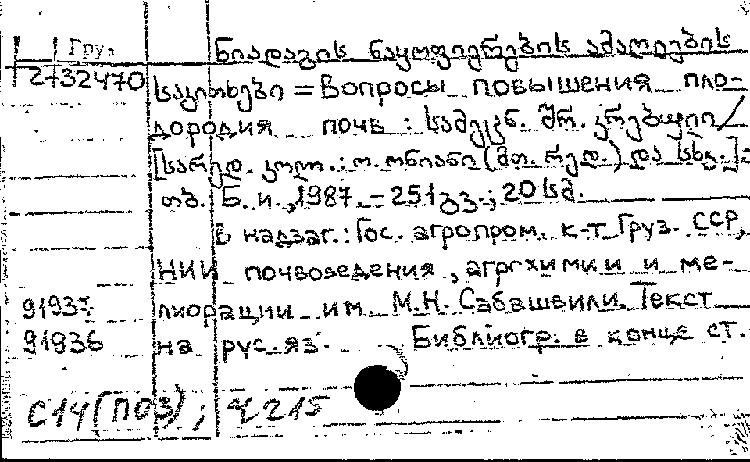 Груз
ნიადაგის ნაყოფიერების ამაღლების
2732470
საკითხები = Вопросы повышения пло-
дородия почв : სამეცნ. შრ. კრებული /
[სარედ. კოლ.: ო. ონიანი (მთ. რედ.) და სხვ.]. -
თბ. Б. и., 1987. - 251 გვ.; 20 სმ.
В надзаг.: Гос. агропром. к-т Груз. ССР,
НИИ почвоведения, агрохимии и ме-
91937 лиорации им. М.Н. Сабашвили. Текст
91936 на рус. яз. Библиогр. в конце ст.
С14(ПОЗ); Ч215